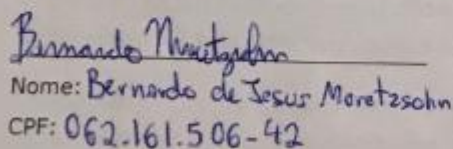 Bernardo Moretzsohn
Nome: Bernardo de Jesus Moretzsohn
CPF: 062.161.506-42